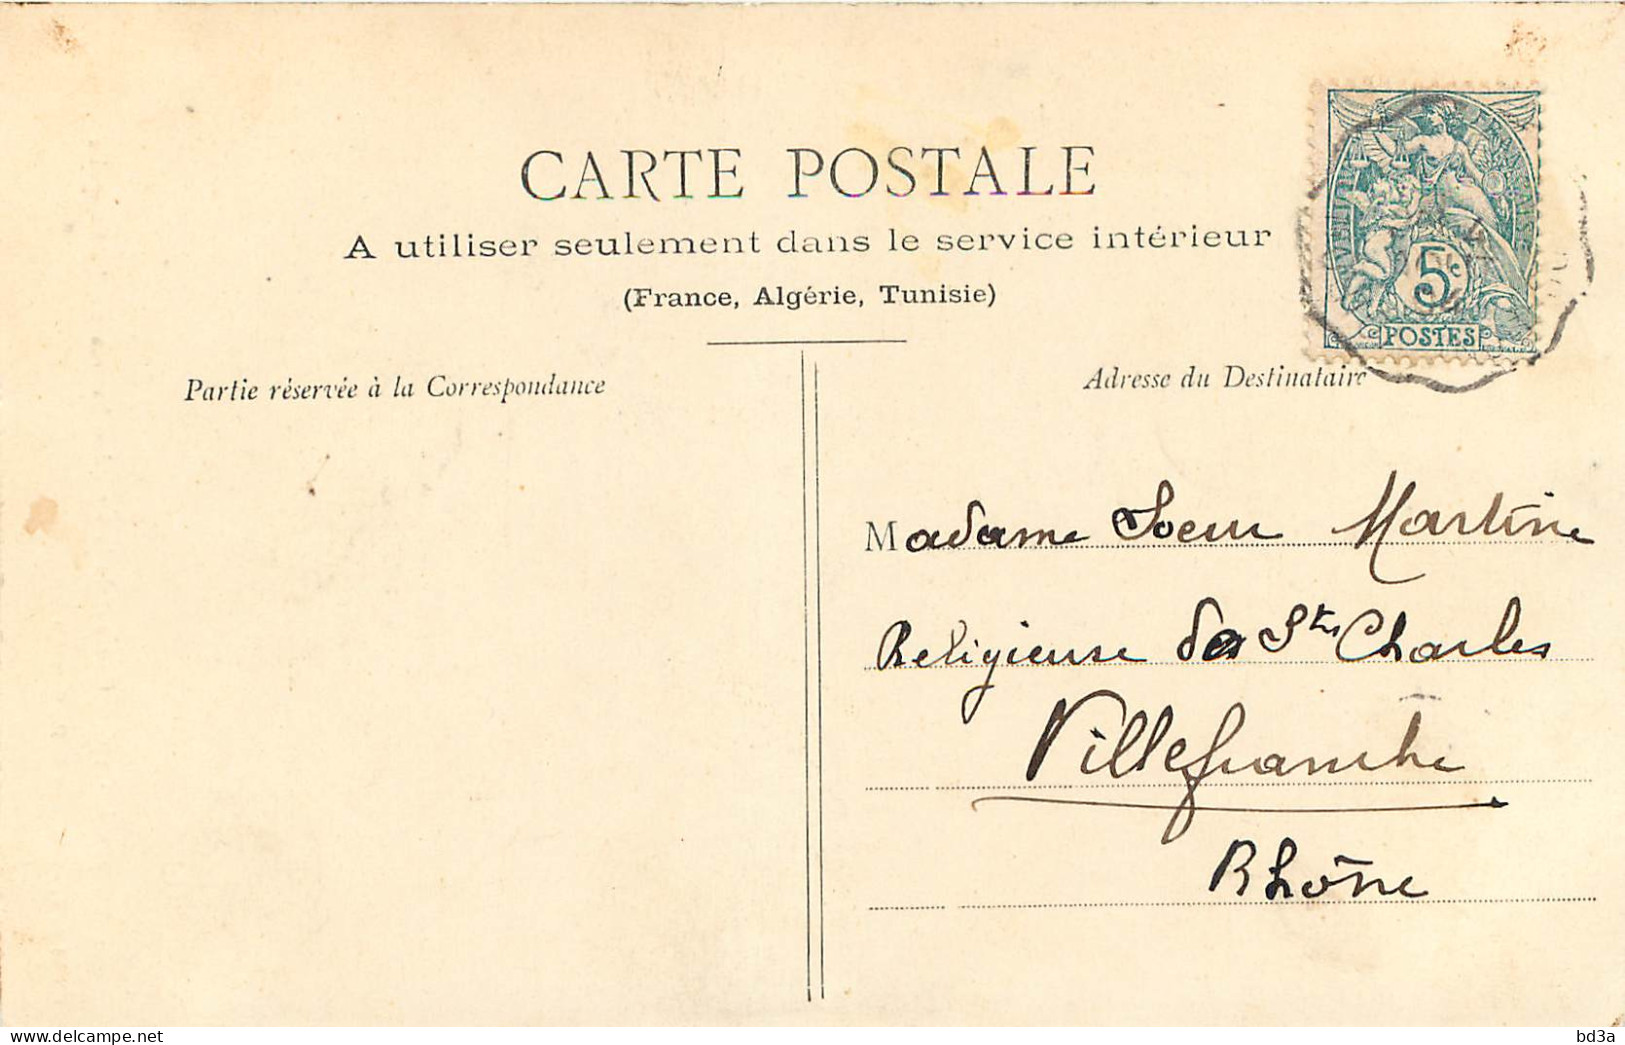 CARTE POSTALE
A utiliser seulement dans le service intérieur
(France, Algérie, Tunisie)
Partie réservée à la Correspondance
Adresse du Destinataire
REPUBLIQUE FRANÇAISE
5c
POSTES
Madame Soeur Martine
Religieuse de St Charles
Villefranche
Rhône
delcampe.net
bd3a